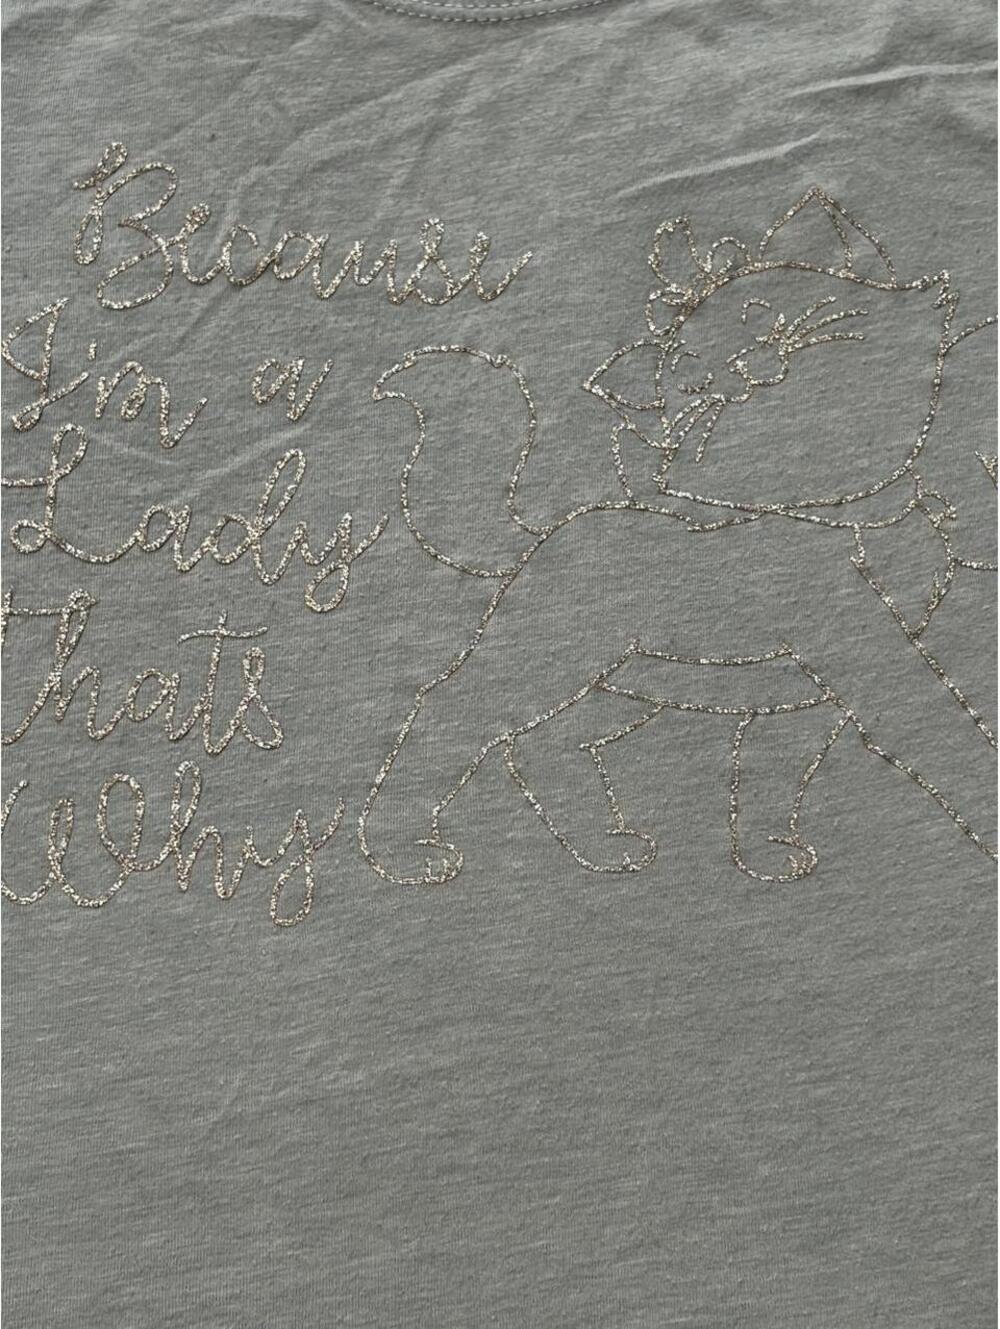 Because
I'm a
Lady
thats
Why